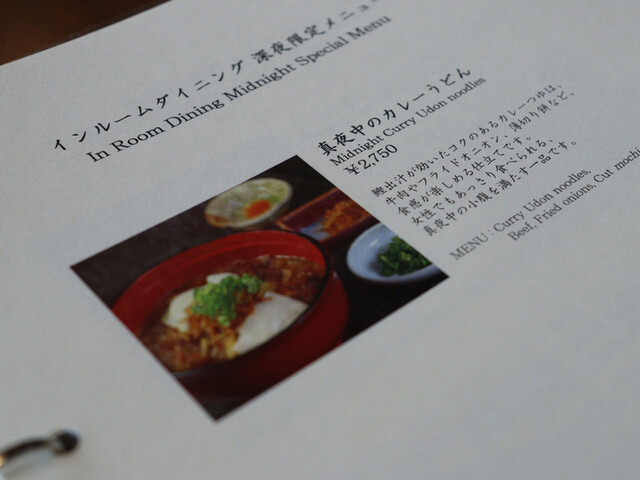 インルームダイニング 深夜限定メニュー
In Room Dining Midnight Special Menu
真夜中のカレーうどん
Midnight Curry Udon noodles
¥2,750
鰹出汁が効いたコクのあるカレーつゆは、
牛肉やフライドオニオン、薄切り餅など、
食感が楽しめる仕立てです。
女性でもあっさり食べられる、
真夜中の小腹を満たす一品です。
MENU : Curry Udon noodles,
Beef, Fried onions, Cut mochi